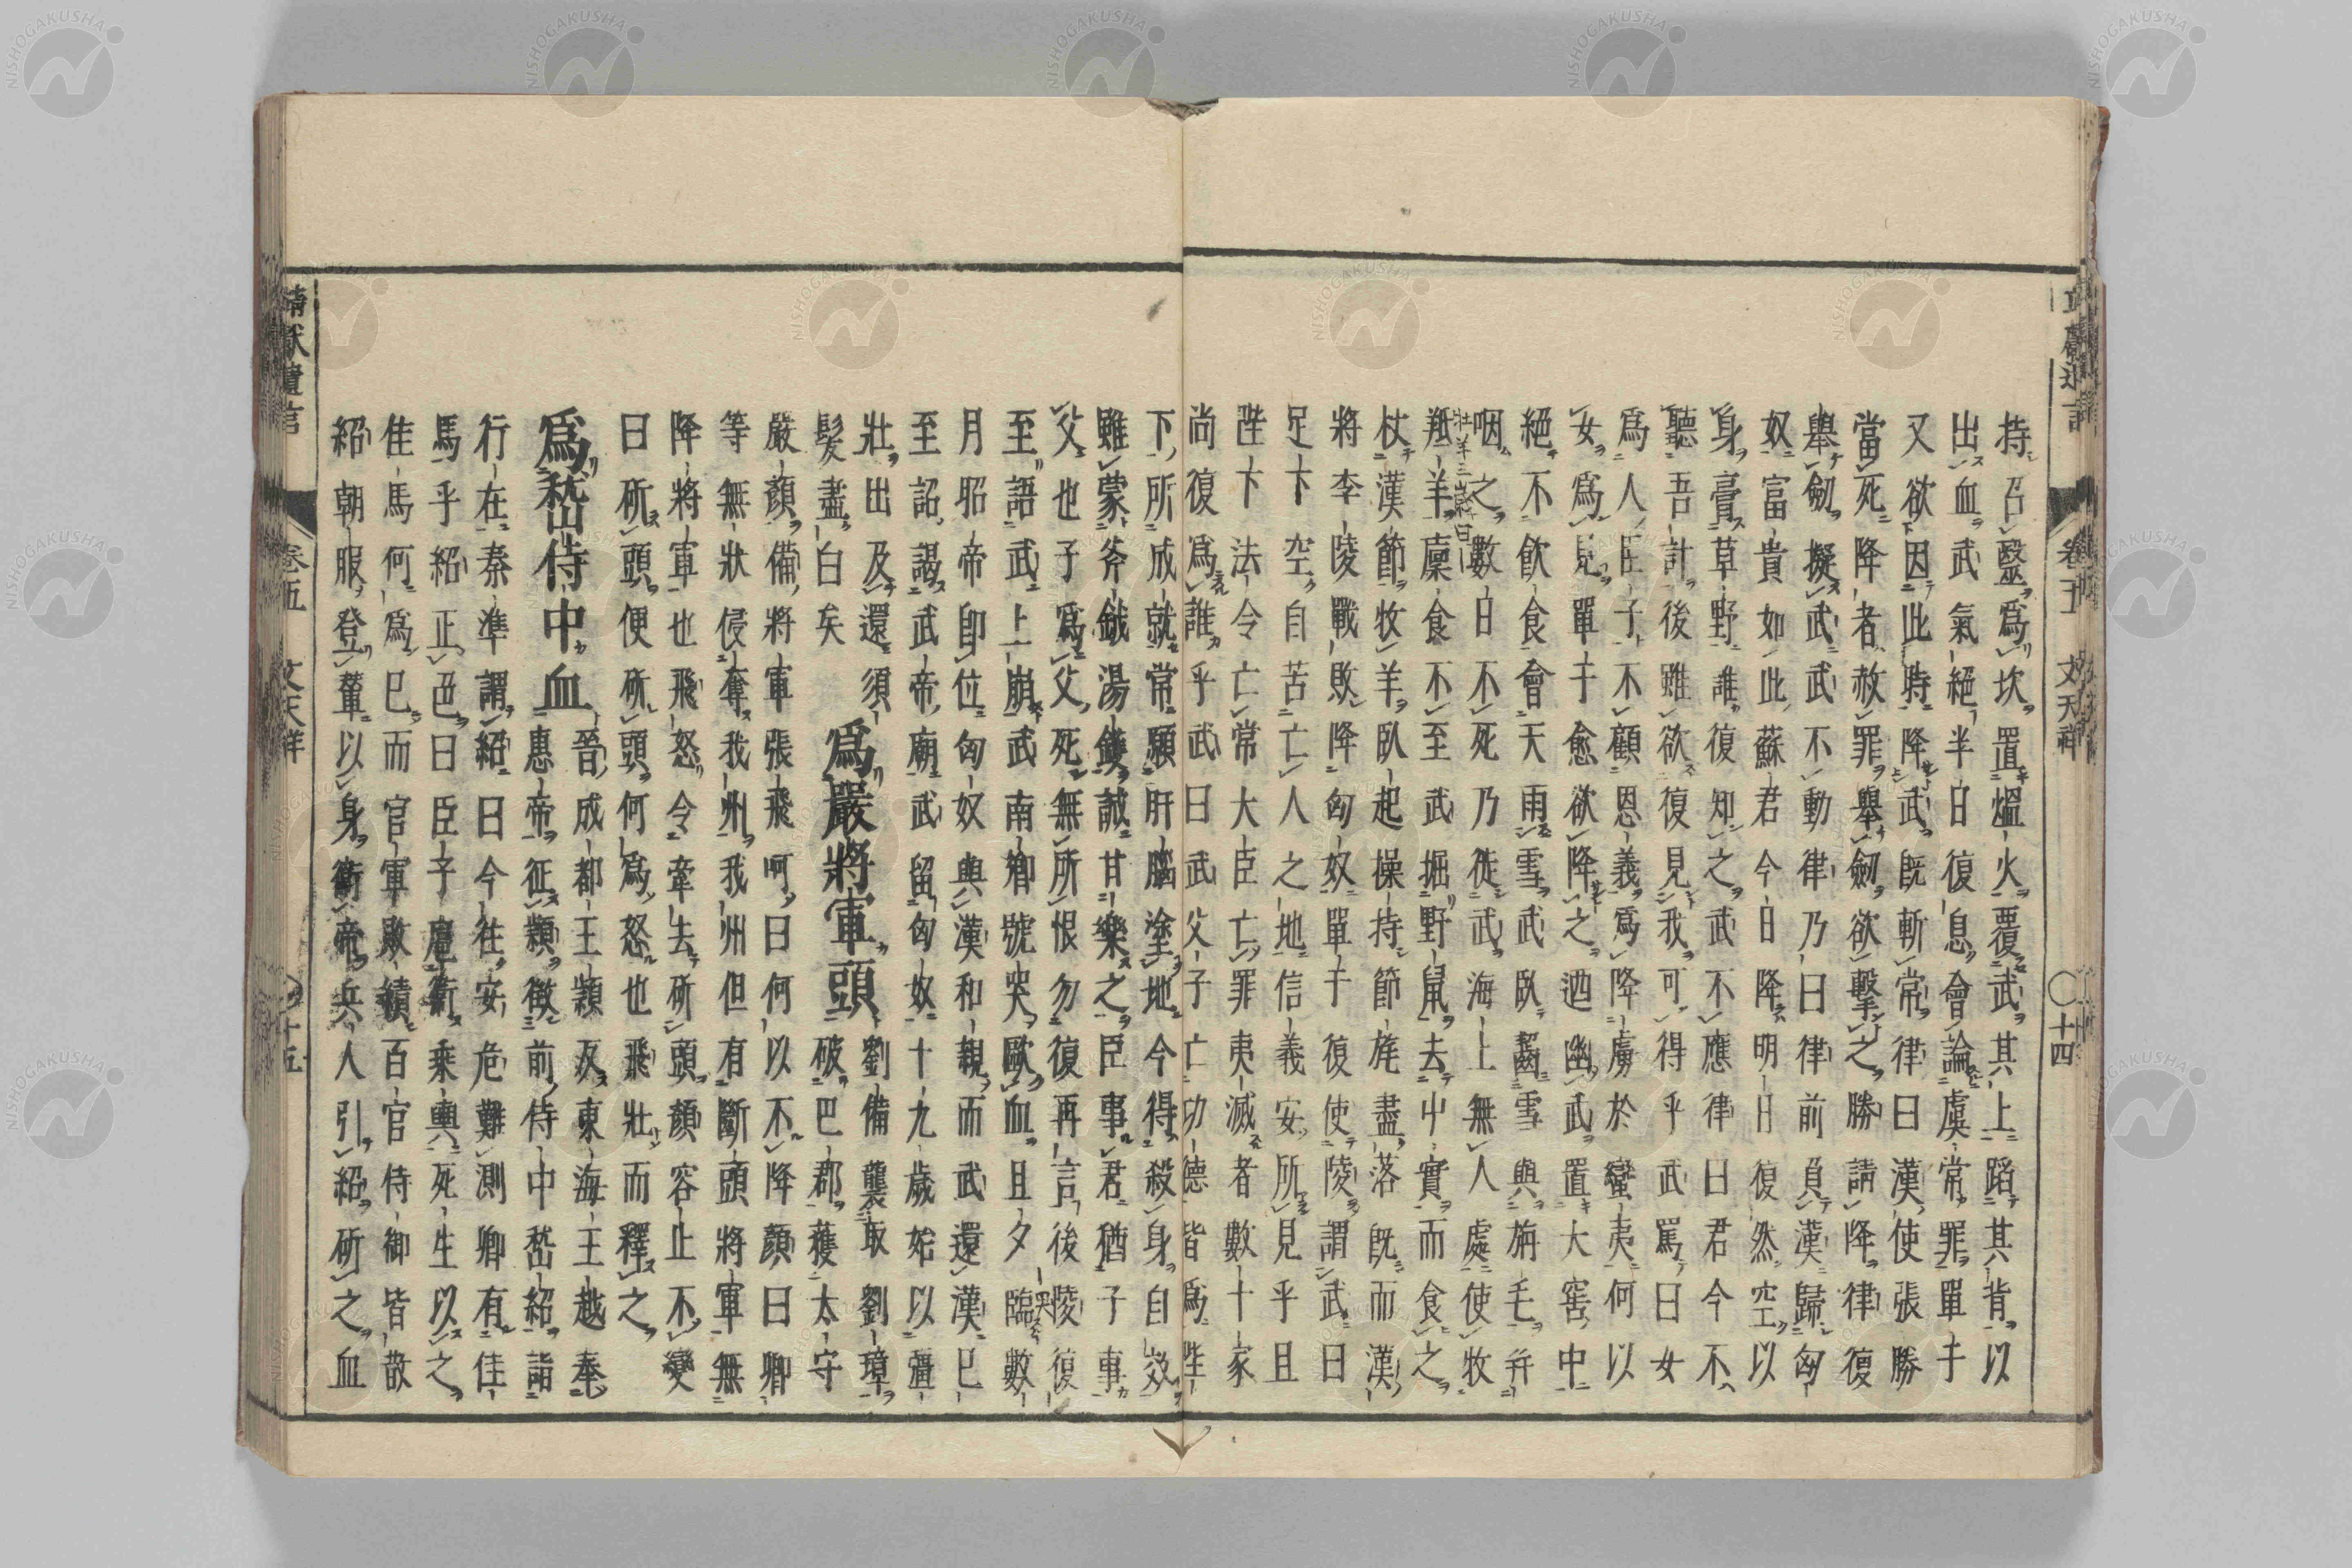 靖獻遺言
卷五 文天祥 〇十四
持召毉爲坎置熅火覆武其上蹈其背以
出血武氣絕半日復息會論虞常罪單于
又欲因此時降武既斬常律曰漢使張勝
當死降者赦罪舉劒欲擊之勝請降律復
舉劒擬武武不動律乃曰律前負漢歸匈
奴富貴如此蘇君今日降明日復然空以
身膏草野誰復知之武不應律曰君今不
聽吾計後雖欲復見我可得乎武罵曰女
爲人臣子不顧恩義爲降虜於蠻夷何以
女爲見單于愈欲降之迺幽武置大窖中
絕不飮食會天雨雪武臥齧雪與旃毛并
咽之數日不死乃徙武海上無人處使牧
羝羊廩食不至武掘野鼠去屮實而食之
杖漢節牧羊臥起操持節旄盡落既而漢
將李陵戰敗降匈奴單于復使陵謂武曰
足下空自苦亡人之地信義安所見乎且
陛下法令亡常大臣亡罪夷滅者數十家
尚復爲誰乎武曰武父子亡功德皆爲陛
下所成就常願肝腦塗地今得殺身自效
雖蒙斧鉞湯鑊誠甘樂之臣事君猶子事
父也子爲父死無所恨勿復再言後陵復
至語武上崩武南鄉號哭歐血旦夕臨數
月昭帝卽位匈奴與漢和親而武還漢已
至詔謁武帝廟武留匈奴十九歲始以彊
壯出及還須
髮盡白矣
爲嚴將軍頭
劉備襲取劉璋
破巴郡獲太守
嚴顏備將軍張飛呵曰何以不降顏曰卿
等無狀侵奪我州我州但有斷頭將軍無
降將軍也飛怒令牽去斫頭顏容止不變
曰斫頭便斫頭何爲怒也飛壯而釋之
爲嵇侍中血
晉成都王穎反東海王越奉
惠帝征穎徵前侍中嵇紹詣
行在秦準謂紹曰今往安危難測卿有佳
馬乎紹正色曰臣子扈衛乘輿死生以之
佳馬何爲已而官軍敗績百官侍御皆散
紹朝服登輦以身衛帝兵人引紹斫之血
靖獻遺言
卷五 文天祥 十五